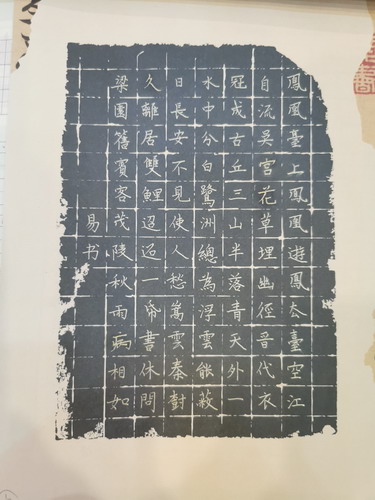 鳳凰臺上鳳凰遊鳳去臺空江
自流吳宮花草埋幽徑晉代衣
冠成古丘三山半落青天外一
水中分白鷺洲總為浮雲能蔽
日長安不見使人愁嵩雲秦樹
久離居雙鯉迢迢一帋書休問
梁園舊賓客茂陵秋雨病相如
易书